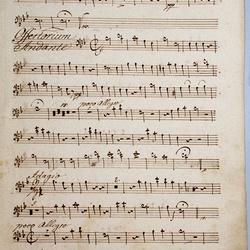 pp
Offertorium
Andante
poco allegro
Adagio
poco allegro